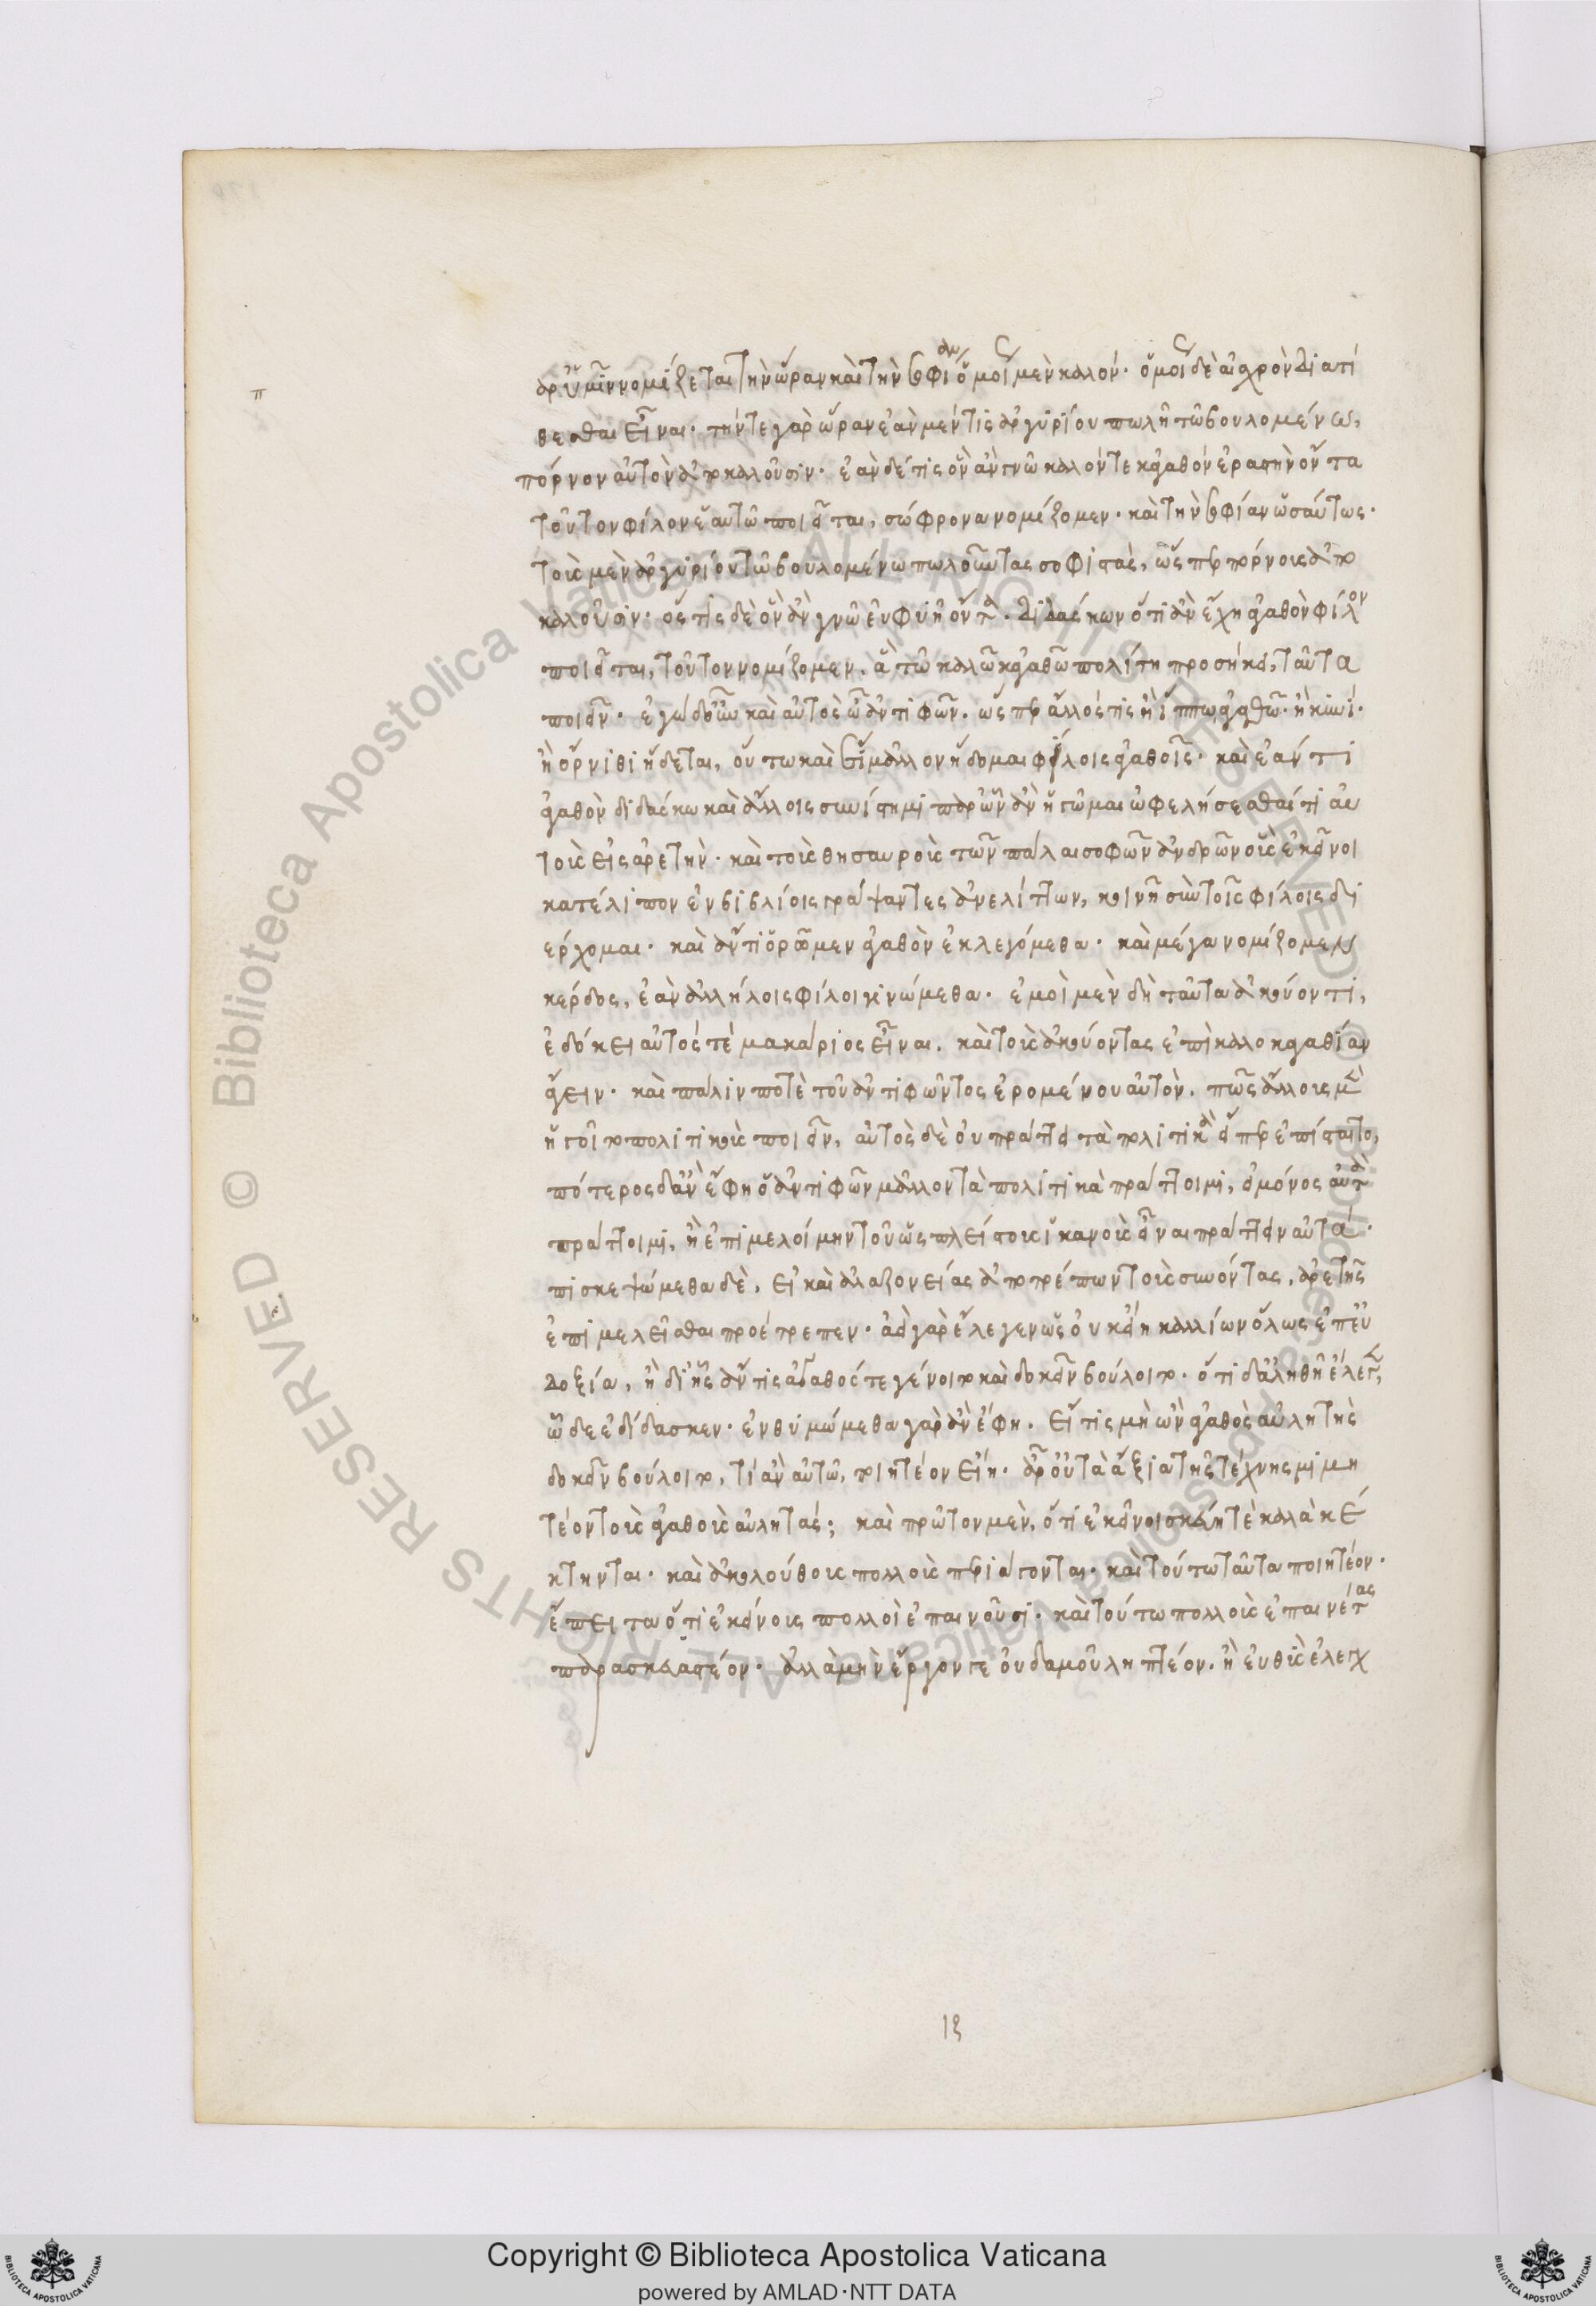 παρ' ὑμῖν νομίζεται τὴν ὥραν καὶ τὴν σοφίαν ὁμοίως μὲν καλόν· ὁμοίως δὲ αἰσχρὸν διατί
θεσθαι εἶναι· τήν τε γὰρ ὥραν ἐὰν μέν τις ἀργυρίου πωλῇ τῷ βουλομένῳ,
πόρνον αὐτὸν ἀποκαλοῦσιν· ἐὰν δέ τις ὃν ἂν γνῷ καλόν τε κἀγαθὸν ἐραστὴν ὄντα
τοῦτον φίλον ἑαυτῷ ποιεῖται, σώφρονα νομίζομεν· καὶ τὴν σοφίαν ὡσαύτως·
τοὺς μὲν ἀργυρίου τῷ βουλομένῳ πωλοῦντας σοφιστάς, ὥσπερ πόρνους ἀπο
καλοῦσιν· ὅστις δὲ ὃν ἂν γνῷ εὐφυῆ ὄντα. διδάσκων ὅτι ἂν ἔχῃ ἀγαθὸν φίλον
ποιεῖται, τοῦτον νομίζομεν. ἃ τῷ καλῷ κἀγαθῷ πολίτῃ προσήκει, ταῦτα
ποιεῖν· ἐγὼ δ' οὖν καὶ αὐτὸς ὦ ἀντιφῶν. ὥσπερ ἄλλός τις ἢ ἵππῳ ἀγαθῷ· ἢ κυνί·
ἢ ὄρνιθι ἥδεται, οὕτω καὶ ἔτι μᾶλλον ἥδομαι φίλοις ἀγαθοῖς· καὶ ἐάν τι
ἀγαθὸν διδάσκω καὶ ἄλλοις συνίστημι παρ' ὧν ἂν ἡγῶμαι ὠφελήσεσθαί τι αὐ
τοὺς εἰς ἀρετήν· καὶ τοὺς θησαυροὺς τῶν πάλαι σοφῶν ἀνδρῶν οὓς ἐκεῖνοι
κατέλιπον ἐν βιβλίοις γράψαντες ἀνελίττων, κοινῇ σὺν τοῖς φίλοις δι
έρχομαι· καὶ ἄν τι ὁρῶμεν ἀγαθὸν ἐκλεγόμεθα· καὶ μέγα νομίζομεν
κέρδος, ἐὰν ἀλλήλοις φίλοι γινώμεθα· ἐμοὶ μὲν δὴ ταῦτα ἀκούοντι,
ἐδόκει αὐτός τε μακάριος εἶναι. καὶ τοὺς ἀκούοντας ἐπὶ καλοκαγαθίαν
ἄγειν· καὶ πάλιν ποτὲ τοῦ ἀντιφῶντος ἐρομένου αὐτόν. πῶς ἄλλους μὲν
ἡγοῖτο πολιτικοὺς ποιεῖν, αὐτὸς δὲ οὐ πράττει τὰ πολιτικὰ εἴπερ ἐπίσταιτο,
πότερος δ' ἂν ἔφη ὦ ἀντιφῶν μᾶλλον τὰ πολιτικὰ πράττοιμι, εἰ μόνος αὐτὰ
πράττοιμι, ἢ ἐπιμελοίμην τοῦ ὡς πλείστους ἱκανοὺς εἶναι πράττειν αὐτά·
πισκεψώμεθα δὲ, εἰ καὶ ἀλαζονείας ἀποτρέπων τοὺς συνόντας, ἀρετῆς
ἐπιμελεῖσθαι προέτρεπεν· ἀεὶ γὰρ ἔλεγεν ὡς οὐκ εἴη καλλίων ὁδὸς ἐπ' εὐ
δοξία, ἢ δι' ἧς ἄν τις ἀγαθός τε γένοιτο καὶ δοκεῖν βούλοιτο· ὅτι δ' ἀληθῆ ἔλεγεν,
ὧδε ἐδίδασκεν· ἐνθυμώμεθα γὰρ ἂν ἔφη. εἴ τις μὴ ὢν ἀγαθὸς αὐλητὴς
δοκεῖν βούλοιτο, τί ἂν αὐτῷ, ποιητέον εἴη· ἆρ' οὐ τὰ ἔξω τῆς τέχνης μιμη
τέον τοὺς ἀγαθοὺς αὐλητάς; καὶ πρῶτον μὲν, ὅτι ἐκεῖνοι σκεύη τὲ καλὰ κέ
κτηνται· καὶ ἀκολούθους πολλοὺς περιάγονται· καὶ τούτῳ ταῦτα ποιητέον·
ἔπειτα ὅτι ἐκείνους πολλοὶ ἐπαινοῦσι· καὶ τούτῳ πολλοὺς ἐπαινέτας
παρασκευαστέον· ἀλλὰ μὴν ἔργον γε οὐδαμοῦ ληπτέον. ἢ εὐθὺς ἐλεγχ